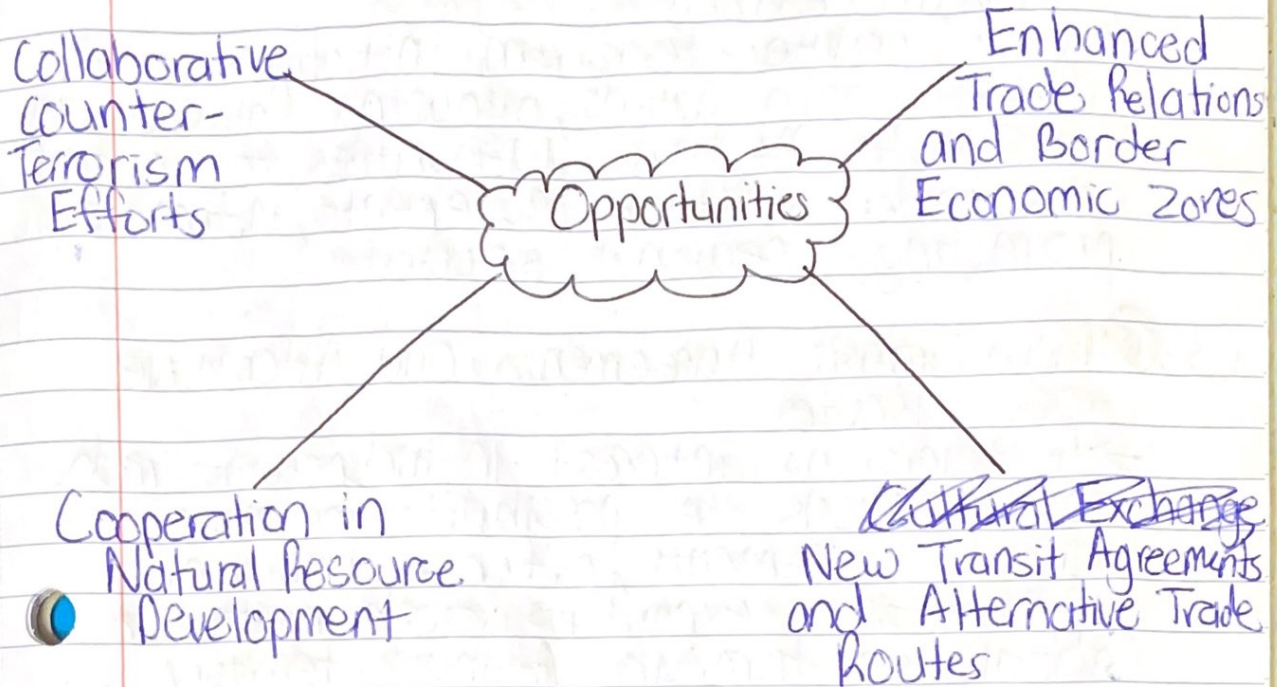 Collaborative
Counter-
Terrorism
Efforts
Enhanced
Trade Relations
and Border
Economic Zones
Opportunities
Cooperation in
Natural Resource
Development
Cultural Exchange
New Transit Agreements
and Alternative Trade
Routes